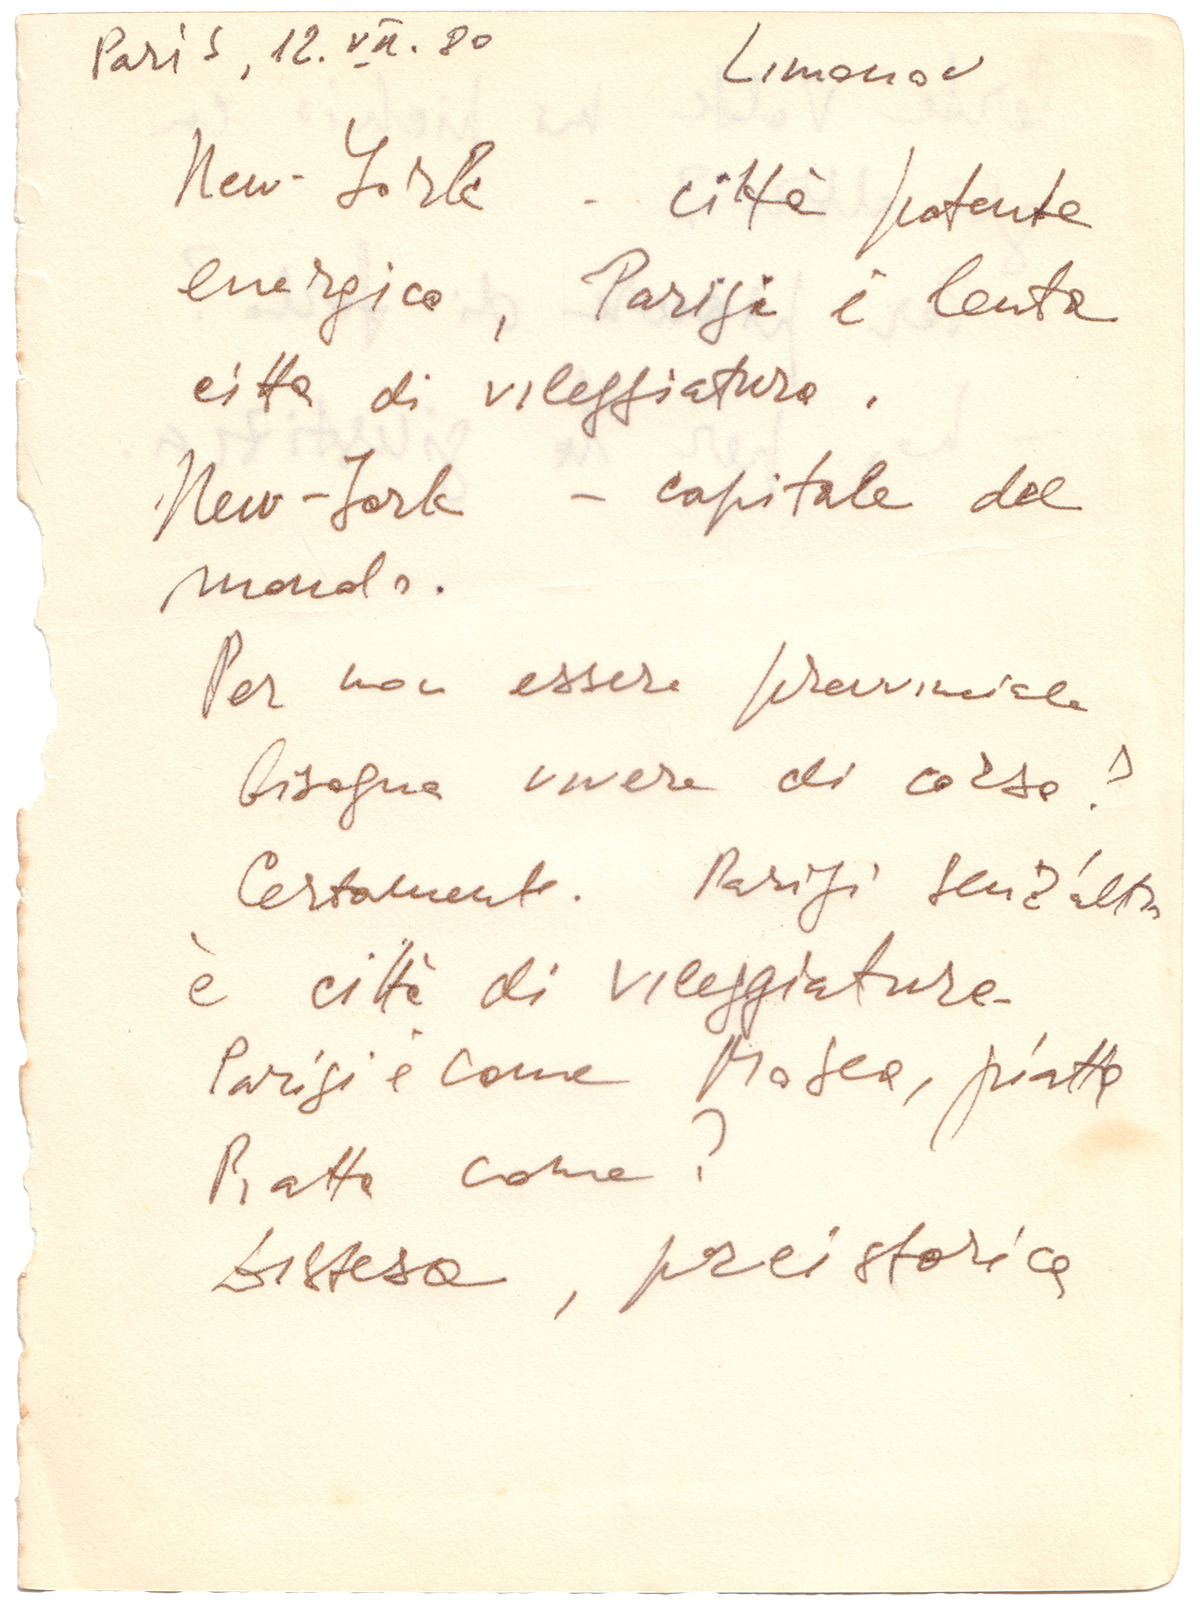 Paris, 12.VII.80 Limonov
New-York - città potente
energica, Parigi è lenta
città di vileggiatura.
New-York - capitale del
mondo.
Per non essere provinciale
bisogna vivere di corsa?
Certamente. Parigi senz'altro
è città di vileggiatura
Parigi è come Mosca, piatta
Piatta come?
Distesa, preistorica